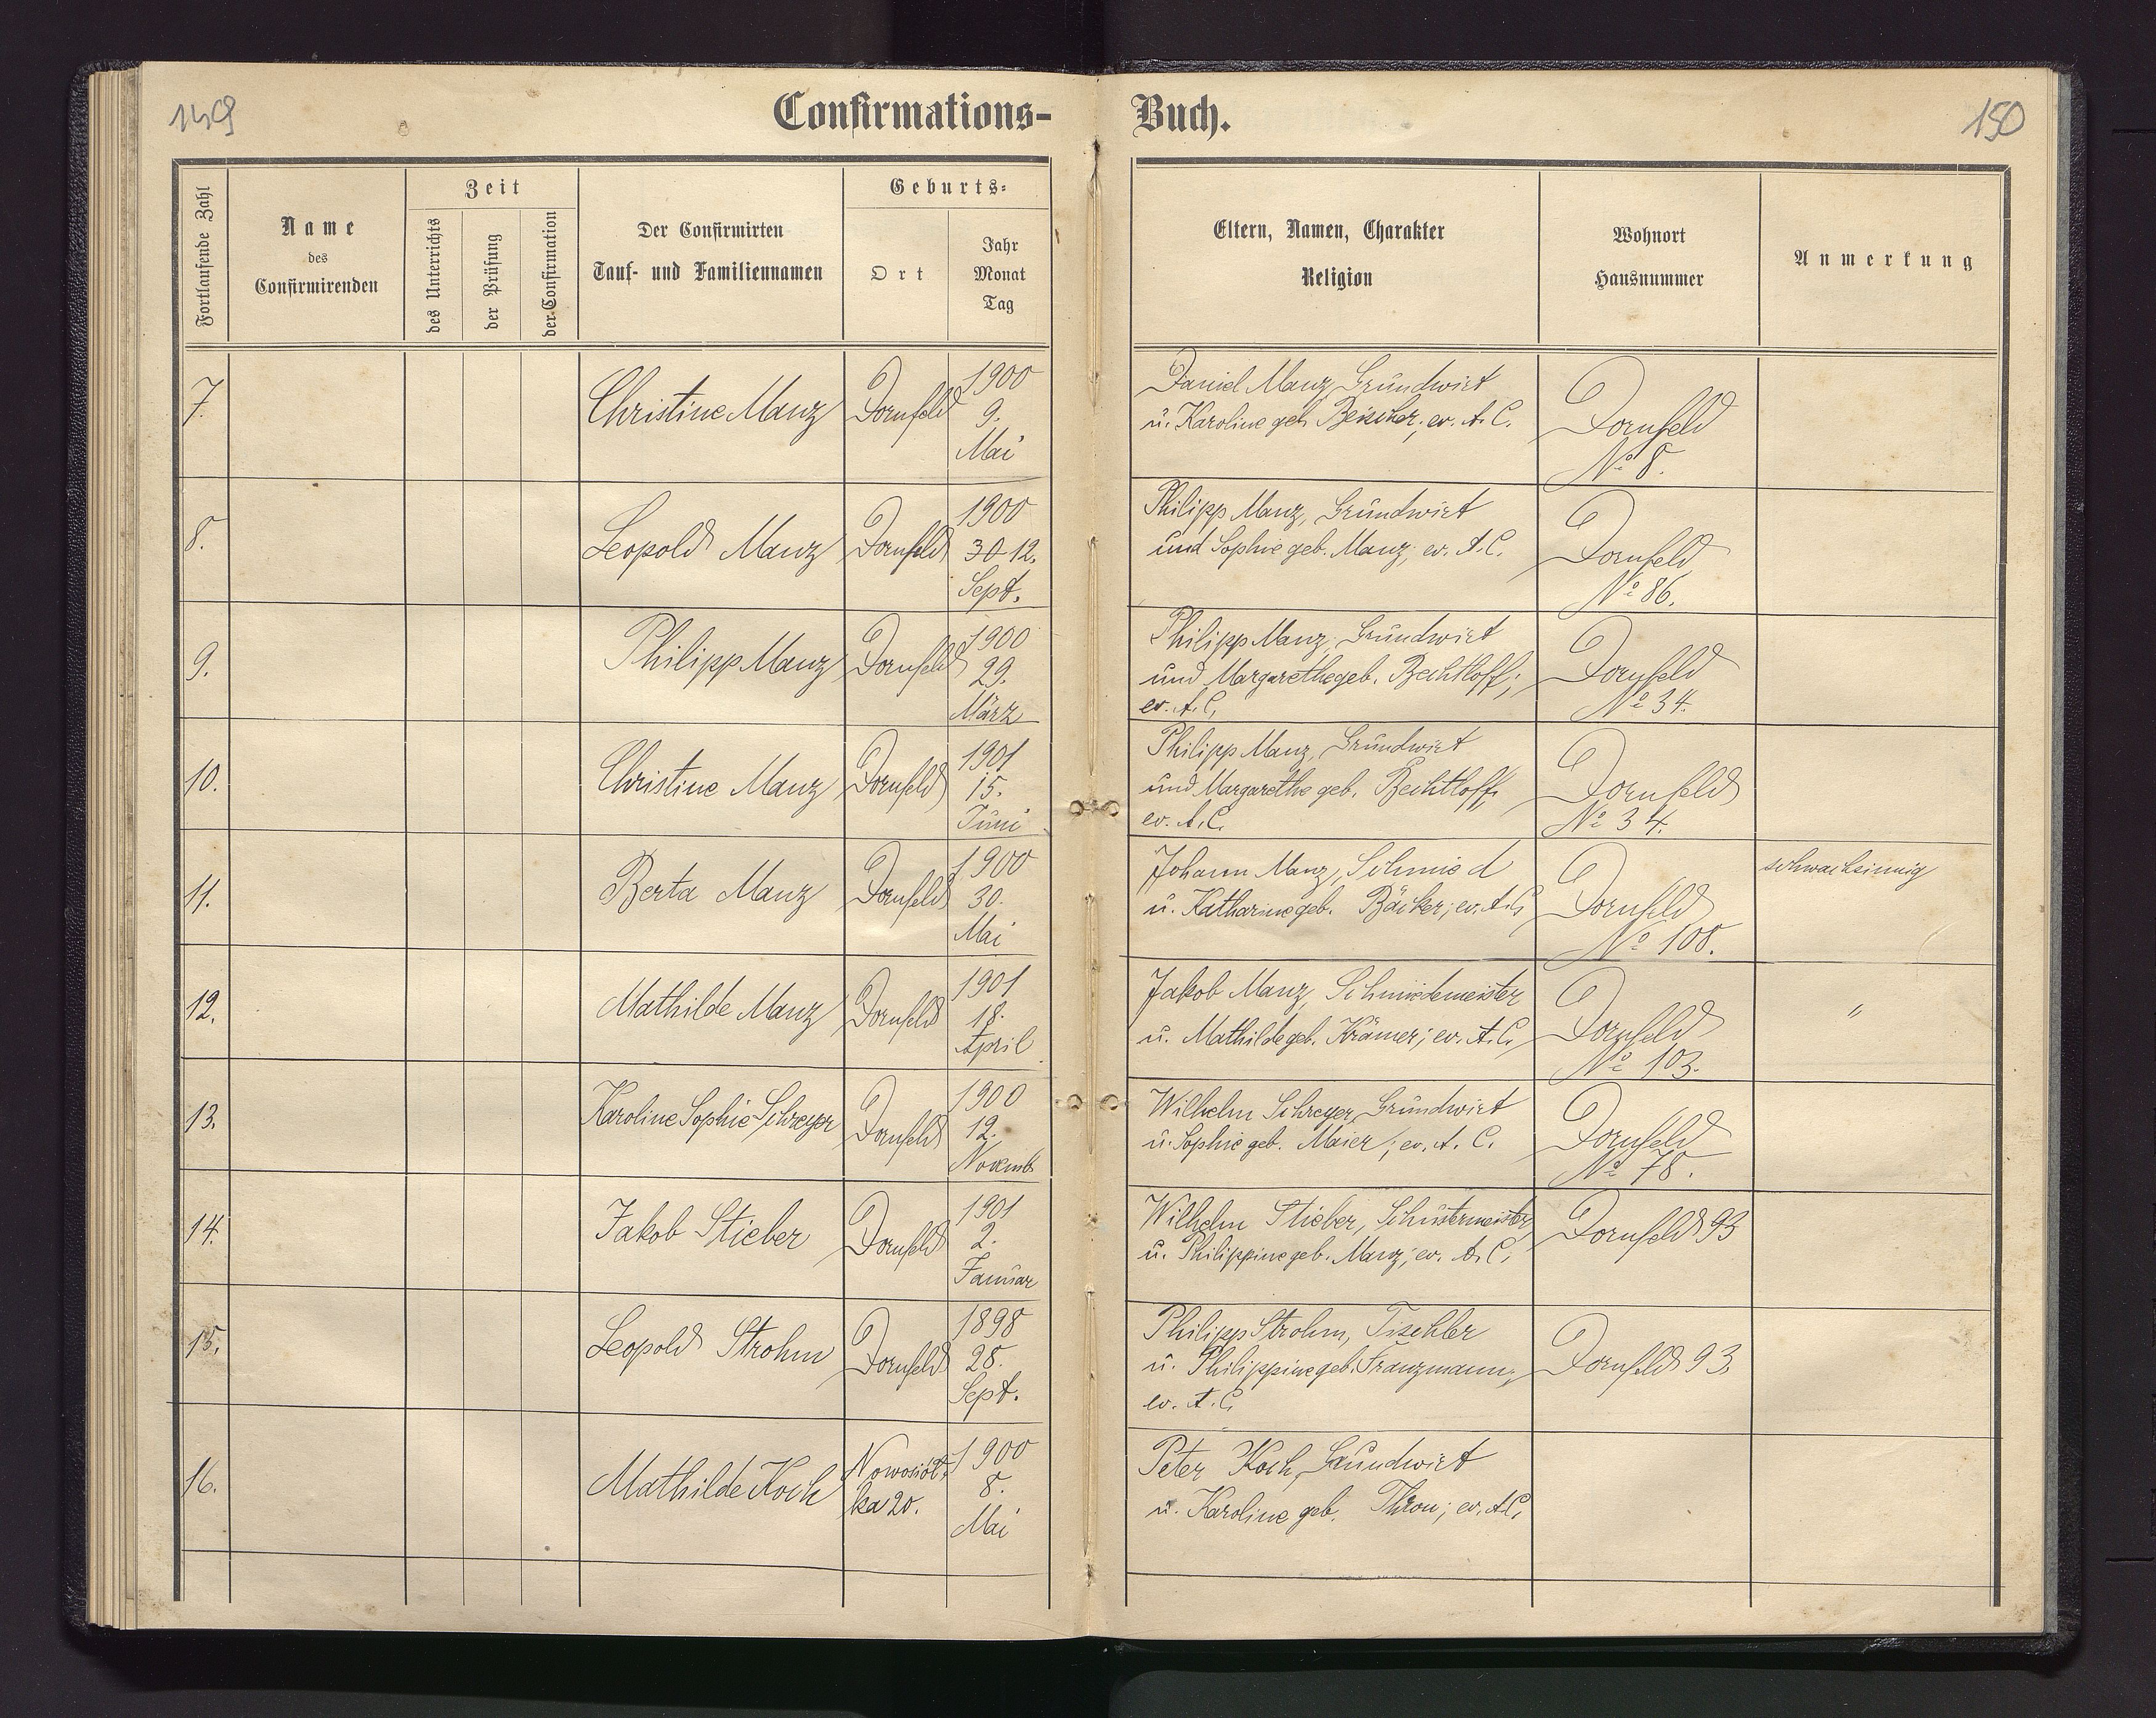 149
Confirmations-
Buch.
150
Fortlaufende Zahl
Name
des
Confirmirenden
Zeit
des Unterrichts
der Prüfung
der Confirmation
Der Confirmirten
Tauf- und Familiennamen
Geburts-
Ort
Jahr
Monat
Tag
Eltern, Namen, Charakter
Religion
Wohnort
Hausnummer
Anmerkung
7.
Christine Manz
Dornfeld
1900
9.
Mai
Daniel Manz, Grundwirt
u. Karoline geb. ev. A. C.
Dornfeld
No 8.
8.
Leopold Manz
Dornfeld
1900
30-12.
Sept.
Philipp Manz, Grundwirt
und Sophie geb. Manz; ev. A. C.
Dornfeld
No 86.
9.
Philipp Manz
Dornfeld
1900
29.
März
Philipp Manz, Grundwirt
und Margarethe geb. Bechtloff;
ev. A. C.
Dornfeld
No 34.
10.
Christine Manz
Dornfeld
1901
15.
Juni
Philipp Manz, Grundwirt
und Margarethe geb. Bechtloff,
ev. A. C.
Dornfeld
No 34.
11.
Berta Manz
Dornfeld
1900
30.
Mai
Johann Manz, Schmied
u. Katharine geb. Bäcker; ev. A. C.
Dornfeld
No 108.
schwachsinnig
12.
Mathilde Manz
Dornfeld
1901
18.
April
Jakob Manz, Schmiedemeister
u. Mathilde geb. Krämer; ev. A. C.
Dornfeld
No 103.
"
13.
Karoline Sophie Schreyer
Dornfeld
1900
12.
Novemb
Wilhelm Schreyer, Grundwirt
u. Sophie geb. Maier; ev. A. C.
Dornfeld
No 78.
14.
Jakob Stieber
Dornfeld
1901
2.
Januar
Wilhelm Stieber, Schustermeister,
u. Philippine geb. Manz; ev. A. C.
Dornfeld 93
15.
Leopold Strohm
Dornfeld
1898
28.
Sept.
Philipp Strohm, Tischler
u. Philippine geb. Franzmann;
ev. A. C.
Dornfeld 93.
16.
Mathilde Koch
Nowosiol-
ka 20.
1900
8.
Mai
Peter Koch, Grundwirt
u. Karoline geb. Thron; ev. A. C.